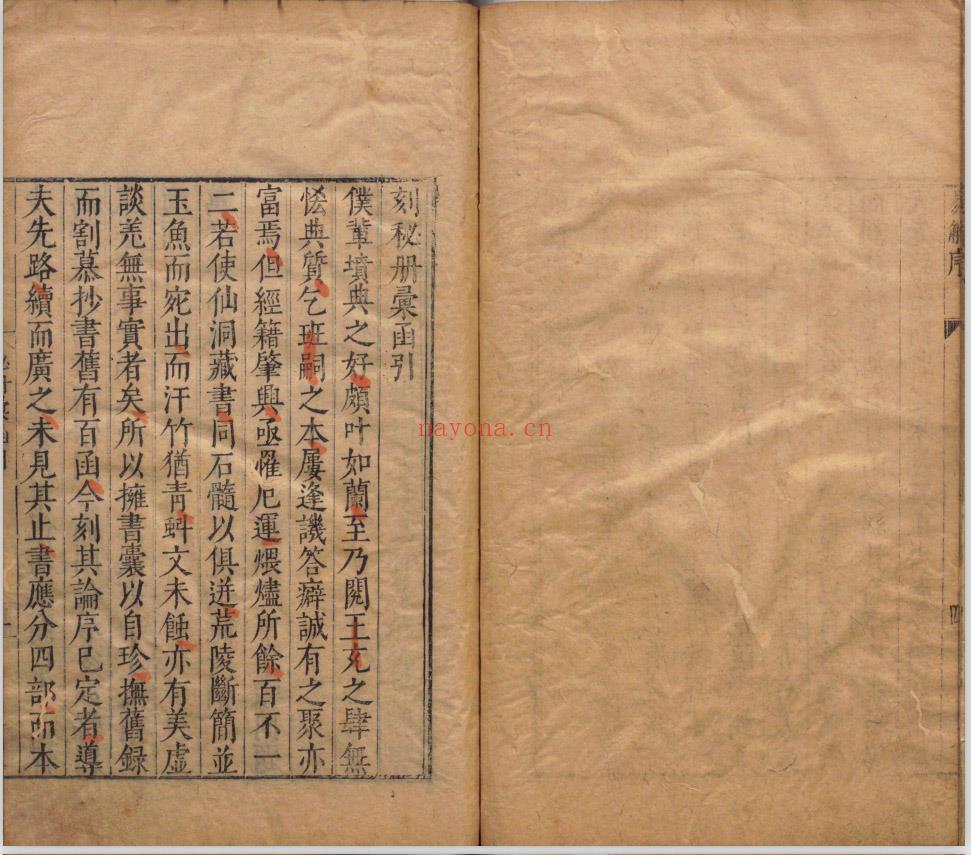 序
四
刻秘册彙函引
僕輩墳典之好頗叶如蘭至乃閱王充之肆無
恡典質乞班嗣之本屢逢譏答癖誠有之聚亦
富焉但經籍肇興亟罹厄運煨燼所餘百不一
二若使仙洞藏書同石髓以俱迸荒陵斷簡並
玉魚而宛出而汗竹猶青蚪文未蝕亦有美虛
談羌無事實者矣所以擁書囊以自珍撫舊録
而割慕抄書舊有百函今刻其論序已定者導
夫先路續而廣之未見其止書應分四部而本
nayona.cn